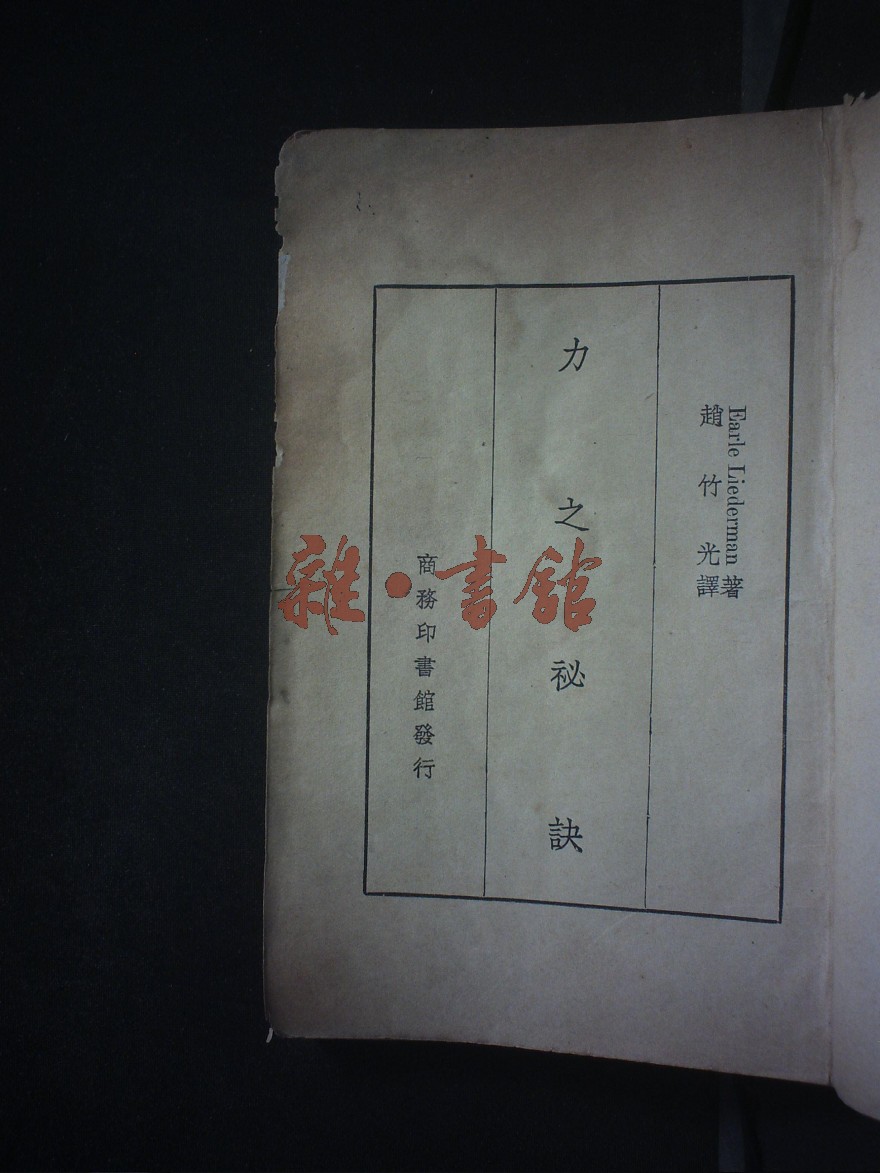 Earle Liederman 著
趙竹光譯
力之祕訣
商務印書館發行
雜•書館